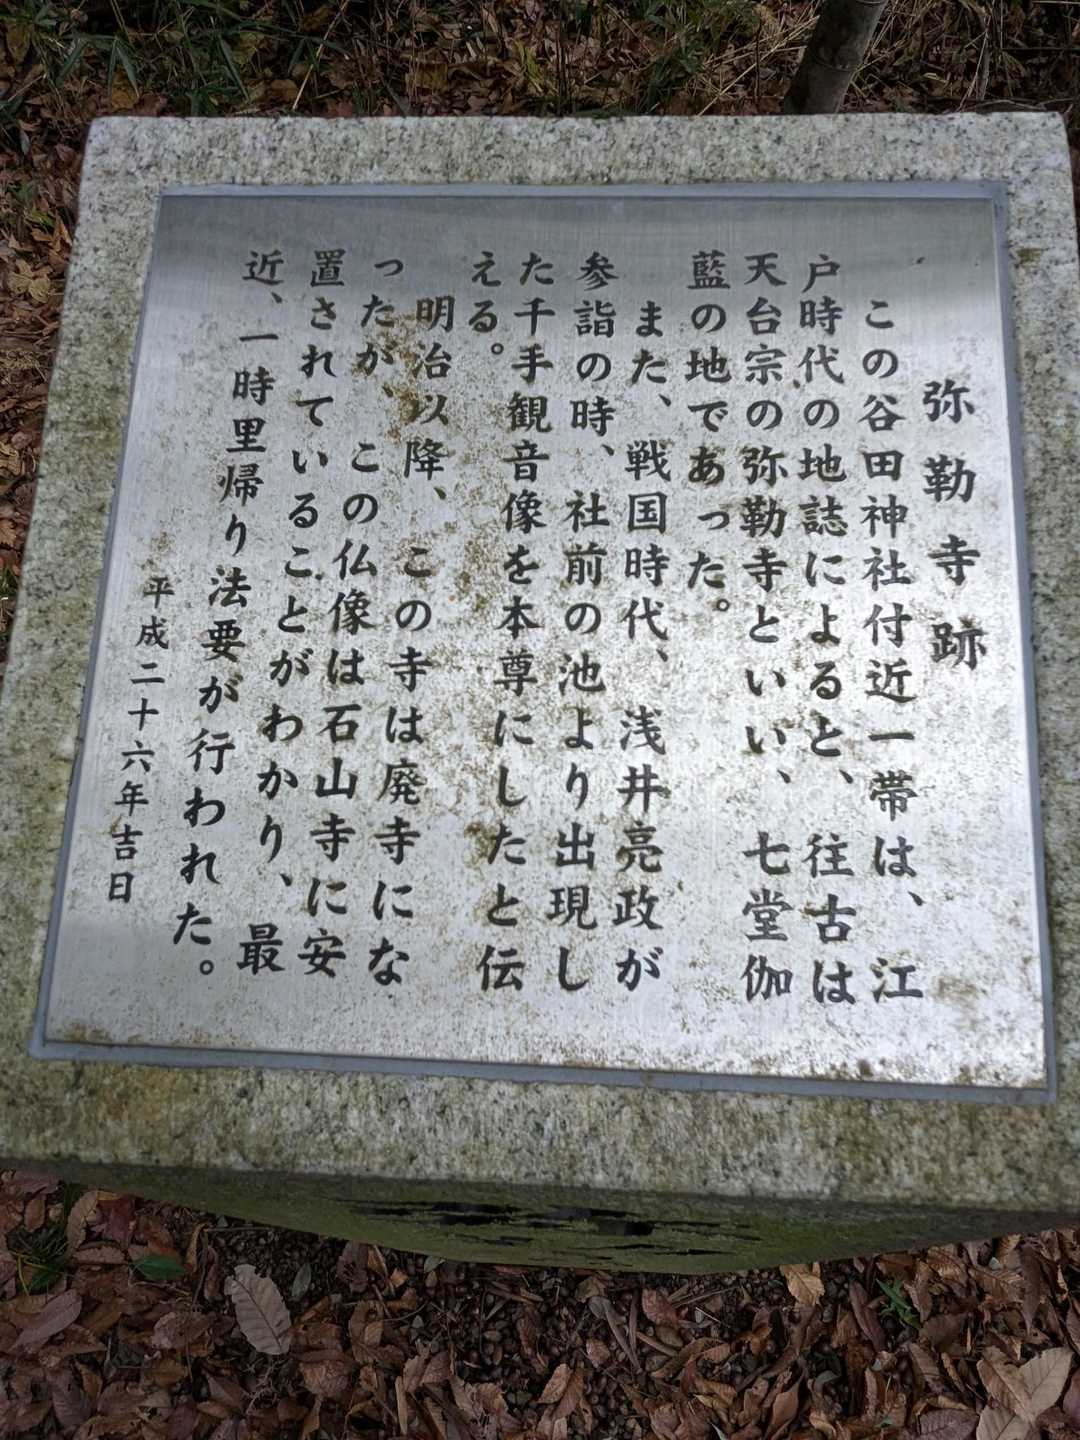 弥勒寺跡
この谷田神社付近一帯は、江
戸時代の地誌によると、往古は
天台宗の弥勒寺といい、七堂伽
藍の地であった。
また、戦国時代、浅井亮政が
参詣の時、社前の池より出現し
た千手観音像を本尊にしたと伝
える。
明治以降、この寺は廃寺にな
ったが、この仏像は石山寺に安
置されていることがわかり、最
近、一時里帰り法要が行われた。
平成二十六年吉日